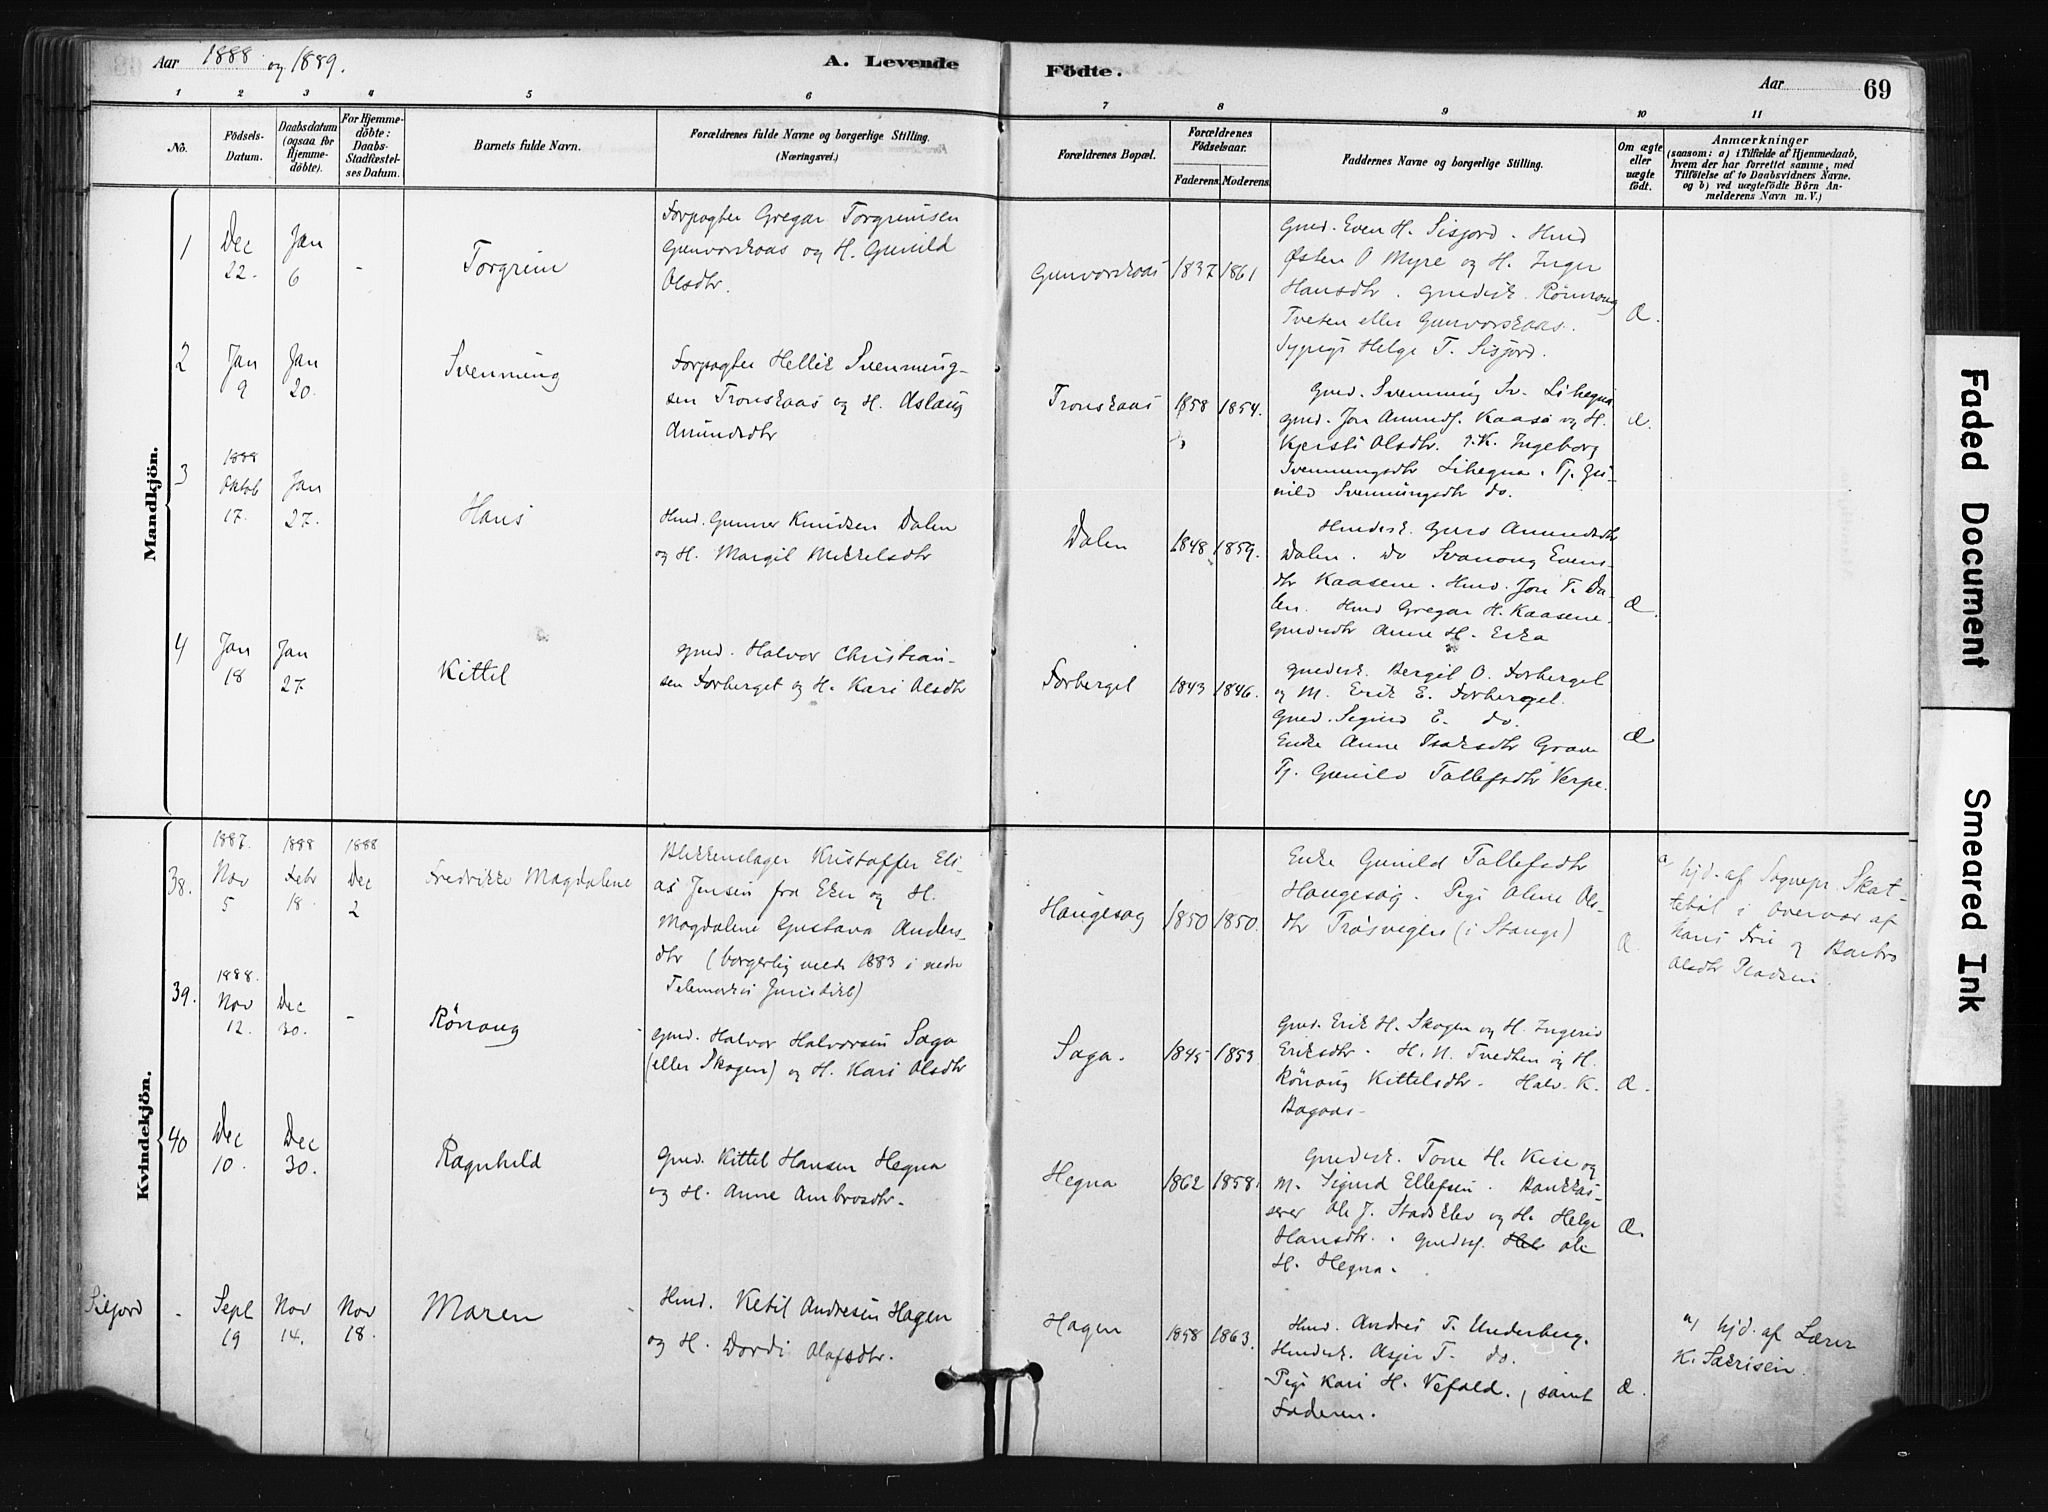 Aar 1888 og 1889.
A. Levende
Födte.
Aar
69
1 2 3 4 5 6 7 8 9 10 11
Nō.
Födsels-
Datum.
Daabsdatum
(ogsaa for
Hjemme-
döbte).
For Hjemme-
döbte:
Daabs-
Stadfæstel-
ses Datum.
Barnets fulde Navn.
Forældrenes fulde Navne og borgerlige Stilling.
(Næringsvei.)
Forældrenes Bopæl.
Forældrenes
Födselsaar.
Faderens. Moderens.
Faddernes Navne og borgerlige Stilling.
Om ægte
eller
uægte
födt.
Anmærkninger
(saasom: a) i Tilfælde af Hjemmedaab,
hvem der har forrettet samme, med
Tilföielse af to Daabsvidners Navne.
og b) ved uægtefödte Börn An-
melderens Navn m. V.)
Mandkjön.
1
Dec
22.
Jan
6
-
Torgrim
Forpagter Gregar Torgrimsen
Gunvorskaas og H. Gunild
Olsdtr.
Gunvorskaas
1837
1861
Gmd. Even H. Sisjord. Hmd
Østen O Myre og H. Inger
Hansdtr. Gmdesk. Rönnoug
Tveten eller Gunvorskaas.
Sypige Helge T. Sisjord.
Æ.
2
Jan
9
Jan
20.
Svenning
Forpagter Hellik Svenning-
sen Tronskaas og H. Aslaug
Amundsdtr
Tronskaas
1858
1854.
Gmd. Svenning Sv. Lihegna
gmd. Jon Amunds. Kaasa og H.
Kjersti Olsdtr. P.K. Ingeborg
Svenningsdtr Lihegna. Tj. Gu-
nild Svenningsdtr do.
Æ.
3
1888
Oktob
17.
Jan
27.
Hans
Hmd. Gunner Knudsen Dalen
og H. Margit Mikkelsdtr
Dalen
1848
1859.
Hmdesk. Guro Amundsdtr
Dalen. Do Svanoug Evens-
dtr Kaasene. Hmd. Jon T. Da-
len. Hmd Gregar H. Kaasene.
Gmdsdtr Anne H. Eika
Æ.
4
Jan
18
Jan
27.
Kittil
gmd. Halvor Christian-
sen Forberget og H. Kari Olsdtr
Forberget
1843
1846.
gmdesk. Bergit O. Forberget
og M. Erik E. Forberget.
Gmd. Sigurd E. do.
Enke Anne Isaksdtr Grave
Tj. Gunild Tallefsdtr Verpe.
Æ
Kvindekjön.
38.
1887.
Nov
5
1888
Febr
18.
1888
Dec
2
Fredrikke Magdalene
Blikkenslager Kristoffer Eli-
as Jensen fra Eker og H.
Magdalene Gustava Anders-
dtr (borgerlig viede 1883 i nedre
Telemarkens Jurisdikt)
Haugesag
1850
1850.
Enke Gunild Tallefsdtr
Haugesag. Pige Aline Ols-
dtr Trøsvigen (i Stange)
Æ.
a) hjd. af Sognepr. Skat-
tebøl i Overvær af
hans Fru og Barbro
Olsdtr Pladsen.
39.
1888.
Nov
12.
Dec
30.
-
Rönaug
gmd. Halvor Halvorsen Saga
(eller Skogen) og H. Kari Olsdtr
Saga.
1845
1853.
Gmd. Erik H. Skogen og H. Ingerid
Eriksdtr. H. N. Tvedten og H.
Rönaug Kittelsdtr. Halv. K.
Bagaas.
Æ.
40
Dec
10.
Dec
30.
Ragnhild
Gmd. Kittel Hansen Hegna
og H. Anne Ambrosdtr.
Hegna
1862
1858.
Gmdesk. Tone H. Kise og
M. Sigurd Ellefsen. Bankkas-
serer Ole J. Stadsklev og H. Helge
Hansdtr. Gmdsøn. Hel Ole
H. Hegna.
Æ.
Siljord
-
Sept
19
Nov
14.
Nov
18.
Maren
Hmd. Ketil Andresen Hagen
og H. Dordi Olafsdtr.
Hagen
1858
1863.
Hmd. Andres T. Underberg.
Hmdesk. Asjer T. do.
Pige Kari H. Vefald., samt
Faderen.
Æ.
a) hjd. af Lærer
K. Sakrisen.
Faded Document
Smeared Ink